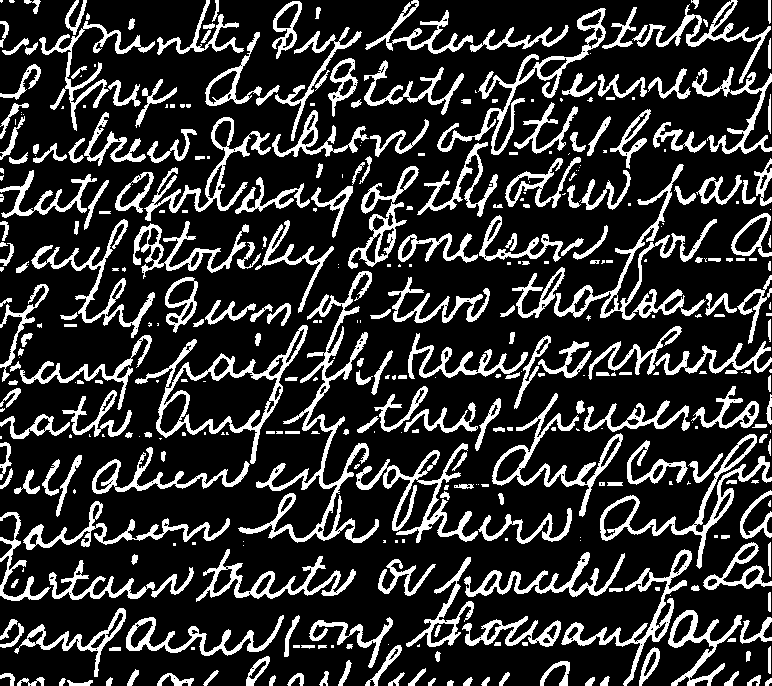 and ninety Six between Stockley
of Knox and State of Tennessee
Andrew Jackson of the Count
State aforesaid of the other part
Said Stockley Donelson for a
of the Sum of two thousand
hand paid the receipt whereo
hath and by these presents
Sell alien enfeoff and Confir
Jackson his heirs and a
Certain traits or parcels of La
sand acres one thousand acre
or less being and bein